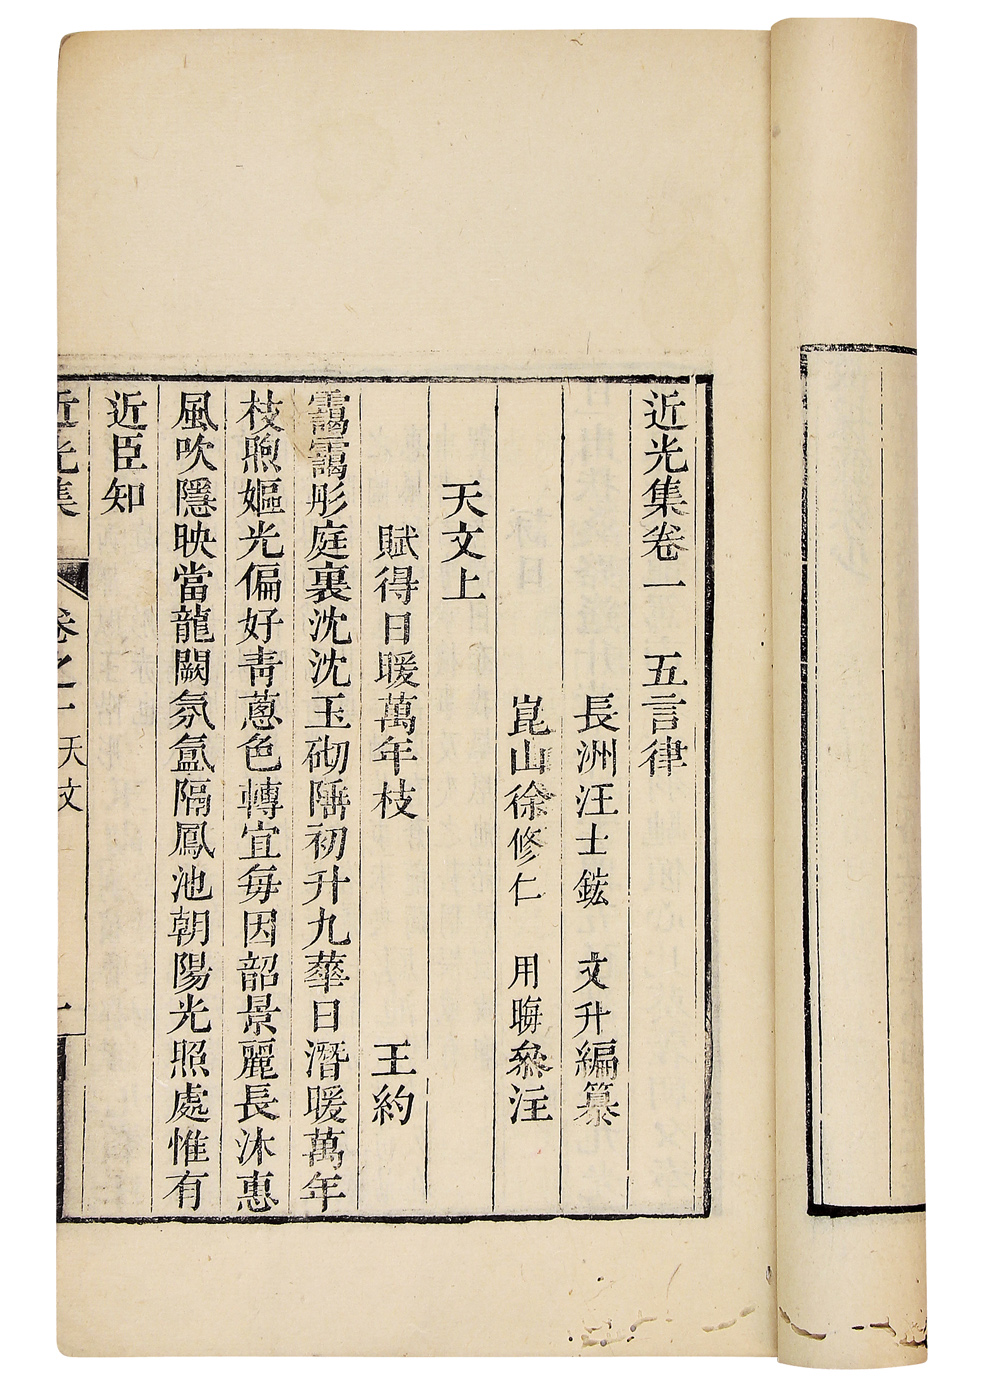 近光集卷一　五言律
長洲汪士鋐　文升編纂
崑山徐修仁　用晦叅注
天文上
賦得日暖萬年枝　王約
靄靄彤庭裏沈沈玉砌陲初升九華日潛暖萬年
枝煦嫗光偏好靑蔥色轉宜每因韶景麗長沐惠
風吹隱映當龍闕氛氳隔鳳池朝陽光照處惟有
近臣知
近光集　卷之一　天文　一